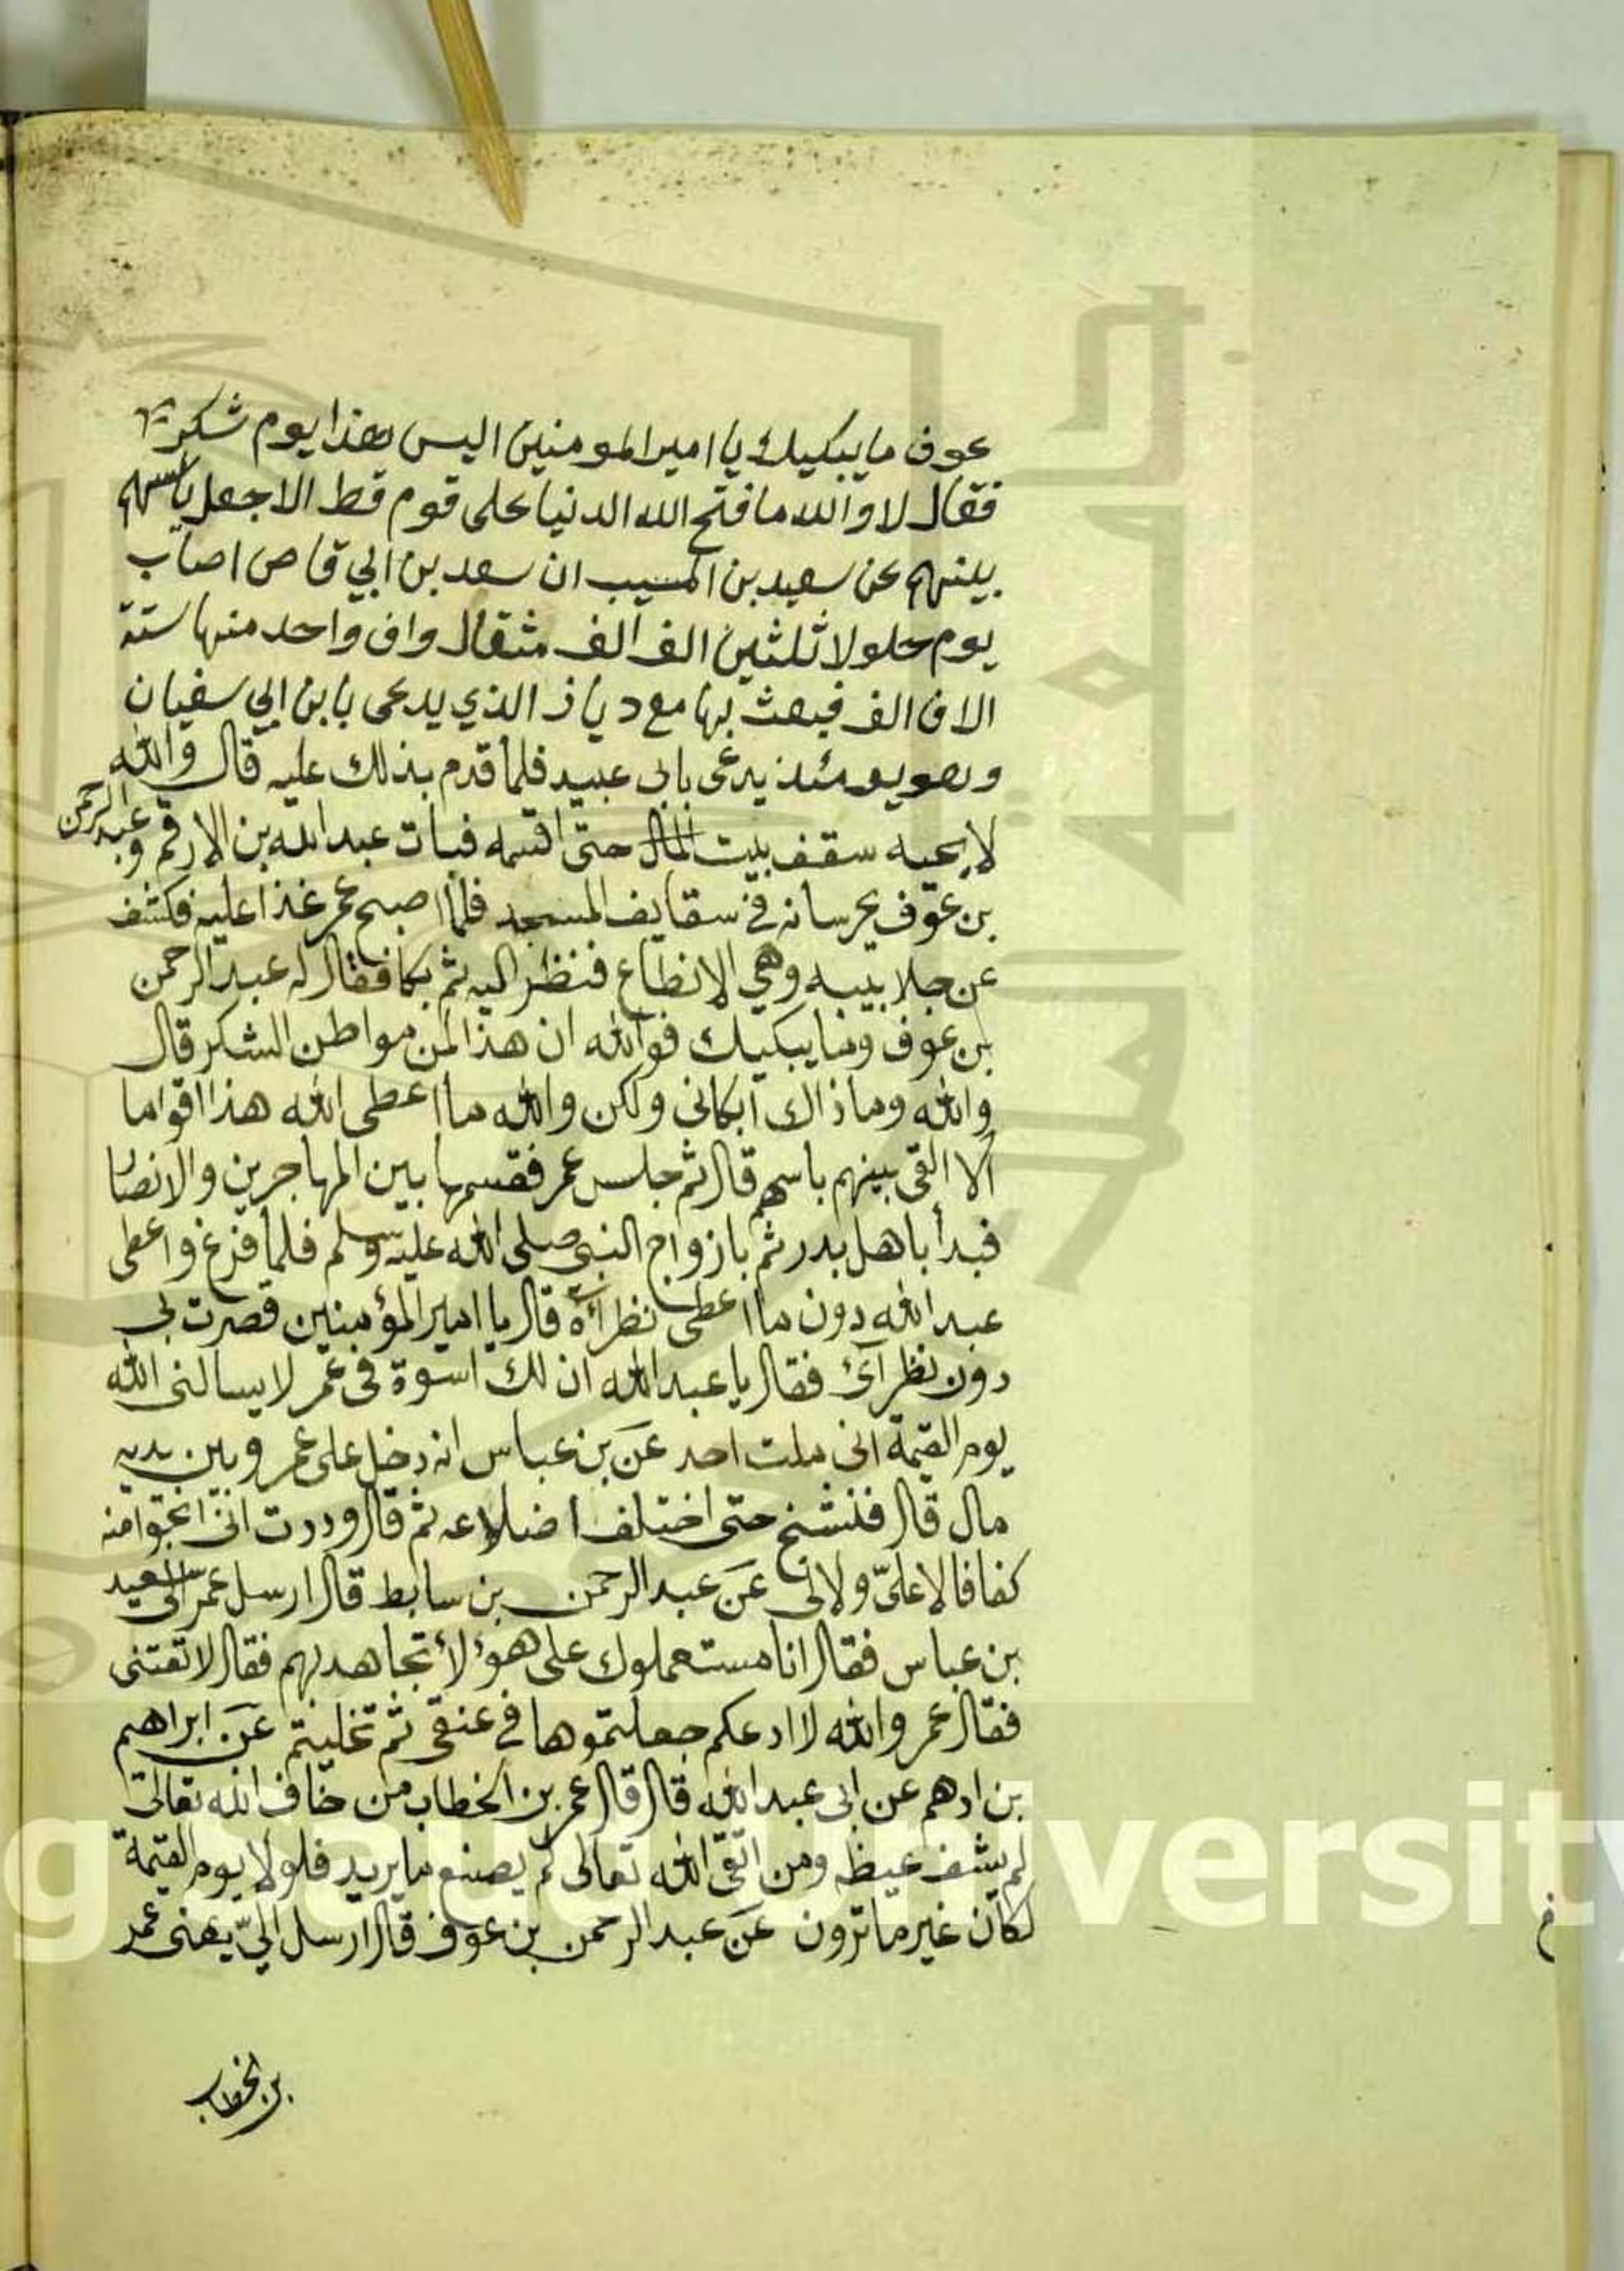 عوف ما يبكيك يا امير المومنين اليس هذا يوم شكر
فقال لا والله ما فتح الله الدنيا على قوم قط الا جعل باسهم
بينهم عن سعيد بن المسيب ان سعد بن ابي قاص اصاب
يوم حلولا ثلثين الف الف مثقال واف واحد منها ستة
الاف الف فبعث بها مع دياز الذي يدعى بابن ابي سفيان
وهو يومئذ يدعى بابى عبيد فلما قدم بذلك عليه قال والله
لا يجبه سقف بيت المال حتى اقسمه فبات عبد الله بن الارقم وعبد الرحمن
بن عوف يحرسانه في سقايف المسجد فلما اصبح عمر غذا عليه فكشف
عن جلابيبه وهي الانطاع فنظر اليه ثم بكا فقال له عبد الرحمن
بن عوف وما يبكيك فوالله ان هذا لمن مواطن الشكر قال
والله وما ذاك ابكانى ولكن والله ما اعطى الله هذا اقواما
الا القى بينهم باسهم قال ثم جلس عمر فقسمها بين المهاجرين والانصار
فبدأ باهل بدر ثم بازواج النبى صلى الله عليه وسلم فلما فرغ واعطى
عبد الله دون ما اعطى نظراءه قال يا امير المؤمنين قصرت بى
دون نظرآئ فقال يا عبد الله ان لك اسوة فى عمر لا يسالنى الله
يوم القيمة انى ملت احد عن بن عباس انه دخل على عمر وبين يديه
مال قال فنشنج حتى اختلف اضلاعه ثم قال وددت انى انجوا منه
كفافا لا علىّ ولا لى عن عبد الرحمن بن سابط قال ارسل عمر الى سعيد
بن عباس فقال انا مستعملوك على هؤلاء تجاهد بهم فقال لا تفتنى
فقال عمر والله لا ادعكم جعلتموها في عنقى ثم تخليتم عن ابراهيم
بن ادهم عن ابى عبد الله قال قال عمر بن الخطاب من خاف الله تعالى
لم يشف غيظه ومن اتقى الله تعالى لم يصنع ما يريد فلولا يوم القيمة
لكان غير ما ترون عن عبد الرحمن بن عوف قال ارسل اليّ يعنى عمر
بن الخطاب